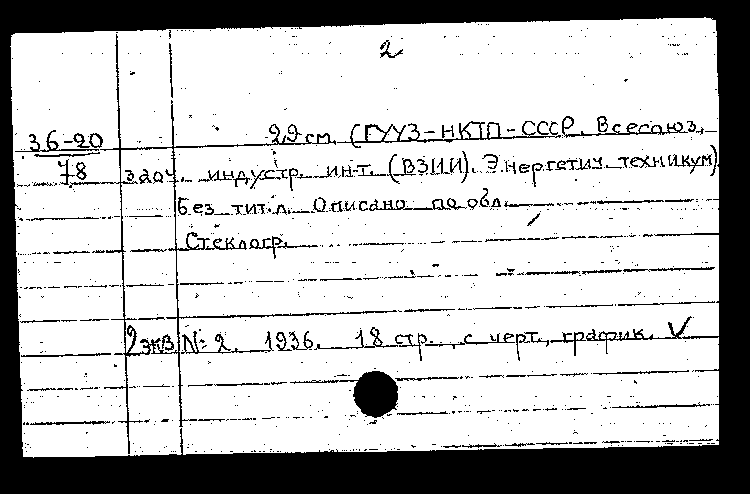 2
36-20 29 см. (ГУУЗ-НКТП-СССР. Всесоюз.
78 заоч. индустр. ин-т. (ВЗИИ). Энергетич. техникум)
Без тит. л. Описано по обл.
Стеклогр.
2 экз N: 2. 1936. 18 стр., с черт., график. V